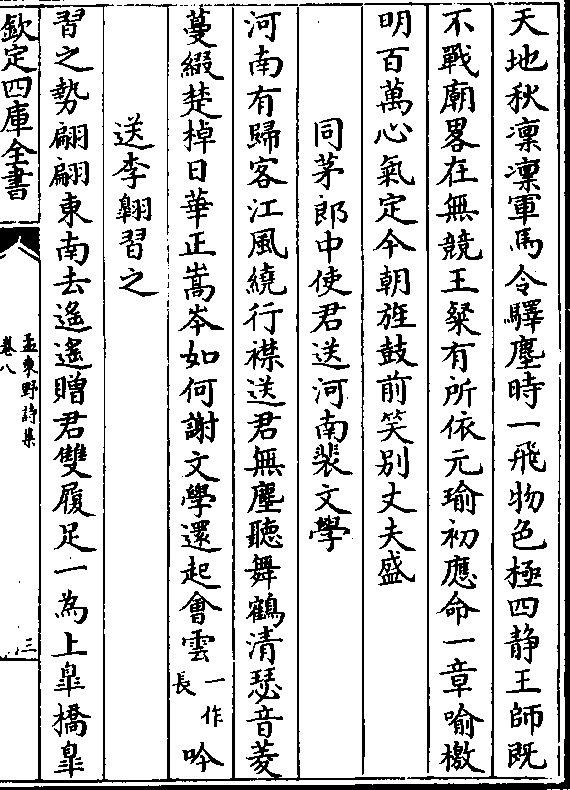 天地秋凜凜軍馬令驛塵時一飛物色極四静王師既
不戰廟畧在無競王粲有所依元瑜初應命一章喻檄
明百萬心氣定今朝旌鼓前笑别丈夫盛
同茅郎中使君送河南裴文學
河南有歸客江風繞行襟送君無塵聽舞鶴清瑟音菱
蔓綴楚棹日華正嵩岑如何謝文學還起會雲一作長吟
送李翺習之
習之勢翩翩東南去遙遙贈君雙履足一為上臯橋臯
欽定四庫全書
孟東野詩集
卷八
三